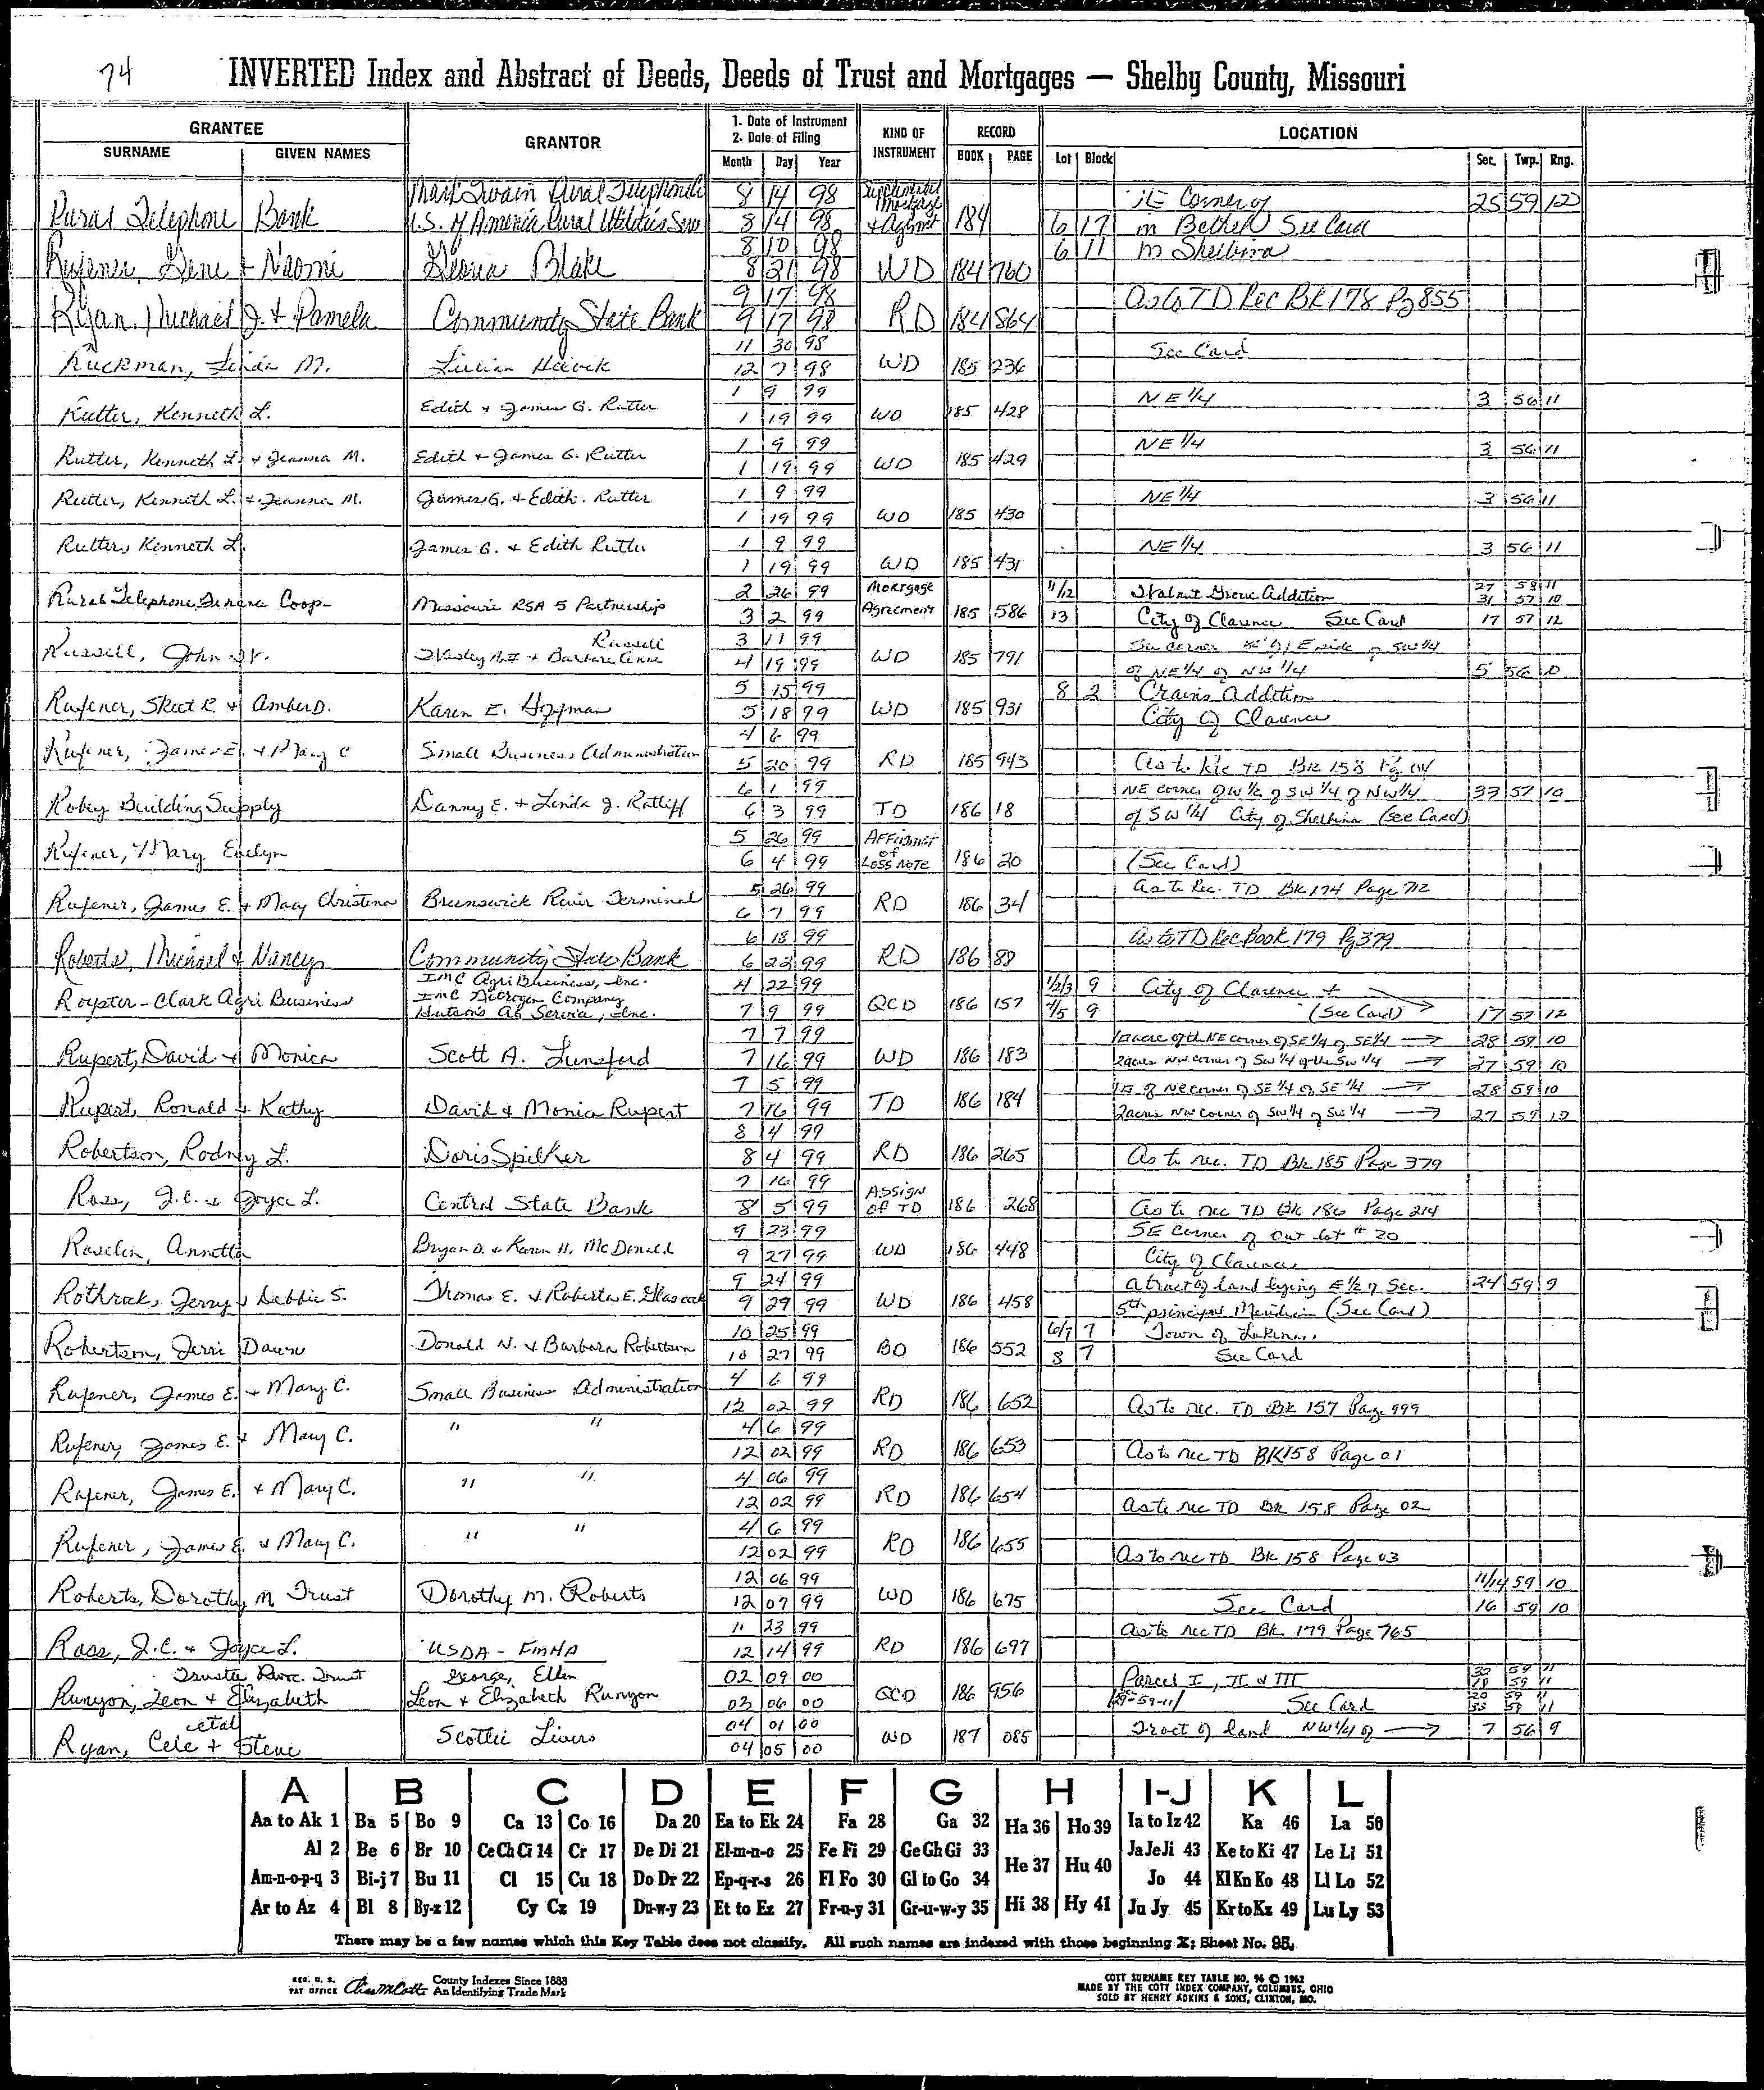 74 INVERTED Index and Abstract of Deeds, Deeds of Trust and Mortgages — Shelby County, Missouri
GRANTEE GRANTOR 1. Date of Instrument 2. Date of Filing KIND OF INSTRUMENT RECORD LOCATION
SURNAME GIVEN NAMES Month Day Year BOOK PAGE Lot Block Sec. Twp. Rng.
Mark Twain Rural Telephone 8 14 98 Supplemental Mortgage Corner of 25 59 12
Rural Telephone Bank U.S. of America Rural Utilities Serv 8 14 98 + Agmt 184 6 17 in Bethel See Card
8 10 98 6 11 in Shelbina
Rufener, Gene + Naomi Gloria Blake 8 21 98 WD 184 760
9 17 98 As to TD Rec BK 178 Pg 855
Ryan, Michael J. + Pamela Community State Bank 9 17 98 RD 184 864
11 30 98 See Card
Ruckman, Linda M. Lillian 12 7 98 WD 185 236
1 9 99 NE 1/4 3 56 11
Rutter, Kenneth L. Edith + James G. Rutter 1 19 99 WD 185 428
1 9 99 NE 1/4 3 56 11
Rutter, Kenneth L. + Jeanna M. Edith + James G. Rutter 1 19 99 WD 185 429
1 9 99 NE 1/4 3 56 11
Rutter, Kenneth L. + Jeanna M. James G. + Edith Rutter 1 19 99 WD 185 430
1 9 99 NE 1/4 3 56 11
Rutter, Kenneth L. James G. + Edith Rutter 1 19 99 WD 185 431
2 26 99 Mortgage 11/12 Walnut Grove Addition 27 58 11
31 57 10
Rural Telephone Finance Coop- Missouri RSA 5 Partnership 3 2 99 Agreement 185 586 13 City of Clarence See Card 17 57 12
Russell 3 11 99 corner E side of SW 1/4
Russell, John Jr. Wesley + Barbara Anne 4 19 99 WD 185 791 of NE 1/4 of NW 1/4 5 56 10
5 15 99 8 2 Crains Addition
Rufener, Skeet R. + Amber D. Karen E. Hoffman 5 18 99 WD 185 931 City of Clarence
4 6 99
Rufener, James E. + Mary C Small Business Administration 5 20 99 RD 185 943 As to Rec TD BK 158 Pg 04
6 1 99 NE corner of W 1/2 of SW 1/4 of NW 1/4 33 57 10
Robey Building Supply Danny E. + Linda J. Ratliff 6 3 99 TD 186 18 of SW 1/4 City of Shelbina (See Card)
5 26 99 Affidavit of
Rufener, Mary Evelyn 6 4 99 Loss Note 186 20 (See Card)
5 26 99 As to Rec. TD BK 174 Page 712
Rufener, James E. + Mary Christena Brunswick River Terminal 6 7 99 RD 186 34
6 18 99 As to TD Rec Book 179 Pg 379
Roberts, Michael + Nancy Community State Bank 6 23 99 RD 186 88
IMC Agri Business, Inc. 4 22 99 1/2/3 9 City of Clarence +
Royster-Clark Agri Business IMC Nitrogen Company QCD 186 157
Hutson's Ag Service, Inc. 7 9 99 4/5 9 (See Card) 17 57 12
7 7 99 NE corner of SE 1/4 of SE 1/4 28 59 10
Rupert, David + Monica Scott A. Lunsford 7 16 99 WD 186 183 2 acres NW corner of SW 1/4 of the SW 1/4 27 59 10
7 5 99 of NE corner of SE 1/4 of SE 1/4 28 59 10
Rupert, Ronald + Kathy David + Monica Rupert 7 16 99 TD 186 184 2 acres NW corner of SW 1/4 of SW 1/4 27 59 10
8 4 99
Robertson, Rodney L. Doris Spilker 8 4 99 RD 186 265 As to rec. TD BK 185 Page 379
7 16 99 Assign
Ross, J.C. + Joyce L. Central State Bank 8 5 99 of TD 186 268 As to rec TD BK 186 Page 214
9 23 99 SE corner of Out lot # 20
Annetta Bryan D. + Karen H. McDonald 9 27 99 WD 186 448 City of Clarence
9 24 99 A tract of land lying E 1/2 of Sec. 24 59 9
Rothrock, Jerry + Debbie S. Thomas E. + Roberta E. Glascock 9 29 99 WD 186 458 5th principal Meridian (See Card)
10 25 99 6/7 7 Town of Lakenan
Robertson, Jerri Dawn Donald N. + Barbara Robertson 10 27 99 BD 186 552 8 7 See Card
4 6 99
Rufener, James E. + Mary C. Small Business Administration 12 02 99 RD 186 652 As to rec. TD BK 157 Page 999
4 6 99
Rufener, James E. + Mary C. " " 12 02 99 RD 186 653 As to rec TD BK 158 Page 01
4 06 99
Rufener, James E. + Mary C. " " 12 02 99 RD 186 654 As to rec TD BK 158 Page 02
4 6 99
Rufener, James E. + Mary C. " " 12 02 99 RD 186 655 As to rec TD BK 158 Page 03
12 06 99 11/14 59 10
Roberts, Dorothy M. Trust Dorothy M. Roberts 12 07 99 WD 186 675 See Card 16 59 10
11 23 99 As to rec TD BK. 179 Page 765
Ross, J.C. + Joyce L. USDA - FmHA 12 14 99 RD 186 697
Trustee Trust George, Ellen 02 09 00 Parcel I, II + III
Runyon, Leon + Elizabeth Leon + Elizabeth Runyon 03 06 00 QCD 186 956 29-59-11/ See Card
etal 04 01 00 Tract of land NW 1/4 of 7 56 9
Ryan, Cele + Steve Scottie Livers 04 05 00 WD 187 085
A B C D E F G H I-J K L
Aa to Ak 1 Ba 5 Bo 9 Ca 13 Co 16 Da 20 Ea to Ek 24 Fa 28 Ga 32 Ha 36 Ho 39 Ia to Iz 42 Ka 46 La 50
Al 2 Be 6 Br 10 Ce Ch Ci 14 Cr 17 De Di 21 El-m-n-o 25 Fe Fi 29 Ge Gh Gi 33 He 37 Hu 40 Ja Je Ji 43 Ke to Ki 47 Le Li 51
Am-n-o-p-q 3 Bi-j 7 Bu 11 Cl 15 Cu 18 Do Dr 22 Ep-q-r-s 26 Fl Fo 30 Gl to Go 34 Jo 44 Kl Kn Ko 48 Ll Lo 52
Ar to Az 4 Bl 8 By-z 12 Cy Cz 19 Du-w-y 23 Et to Ez 27 Fr-u-y 31 Gr-u-w-y 35 Hi 38 Hy 41 Ju Jy 45 Kr to Kz 49 Lu Ly 53
There may be a few names which this Key Table does not classify. All such names are indexed with those beginning X; Sheet No. 95.
REG. U. S. PAT OFFICE County Indexes Since 1888 An Identifying Trade Mark
COTT SURNAME KEY TABLE NO. 96 © 1962
MADE BY THE COTT INDEX COMPANY, COLUMBUS, OHIO
SOLD BY HENRY ADKINS & SONS, CLINTON, MO.